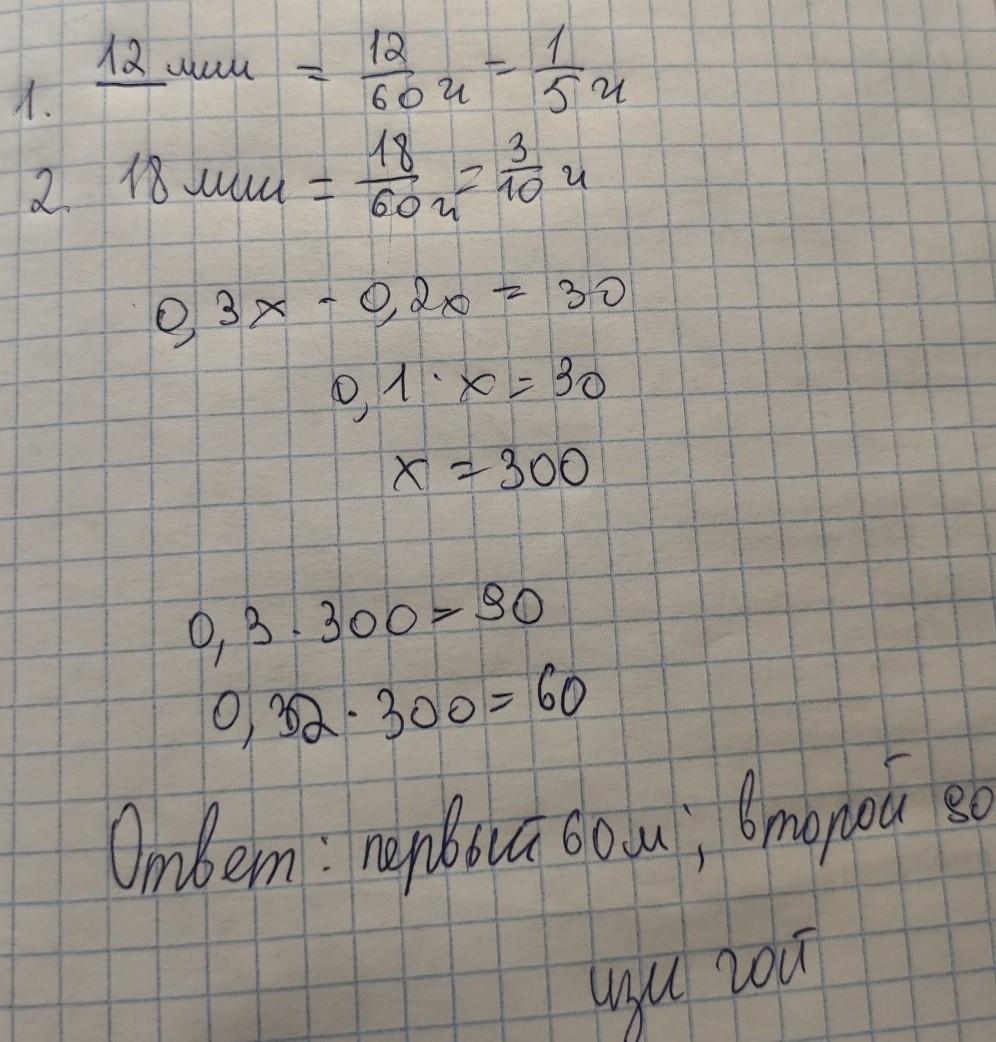 1. 12 мин = 12/60 ч = 1/5 ч
2. 18 мин = 18/60 ч = 3/10 ч
0,3x - 0,2x = 30
0,1 · x = 30
x = 300
0,3 · 300 = 90
0,2 · 300 = 60
Ответ: первый 60 м; второй 90
изи гой